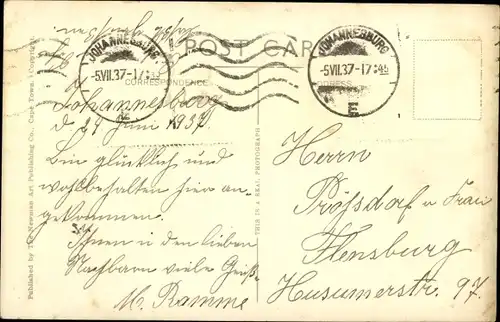 POST CARD
JOHANNESBURG
-5.VII.37-17:45
E
JOHANNESBURG
-5.VII.37-17:45
E
CORRESPONDENCE
ADDRESS
Johannesburg
d 29 Juni 1937.
Bin glücklich und
wohlbehalten hier an-
gekommen.
Ihnen u den lieben
Nachbarn viele Grüße
M. Ramme
Herrn
Prößdorf u Frau
Flensburg
Husumerstr. 97.
THIS IS A REAL PHOTOGRAPH
Published by The Newman Art Publishing Co., Cape Town. (Copyright)